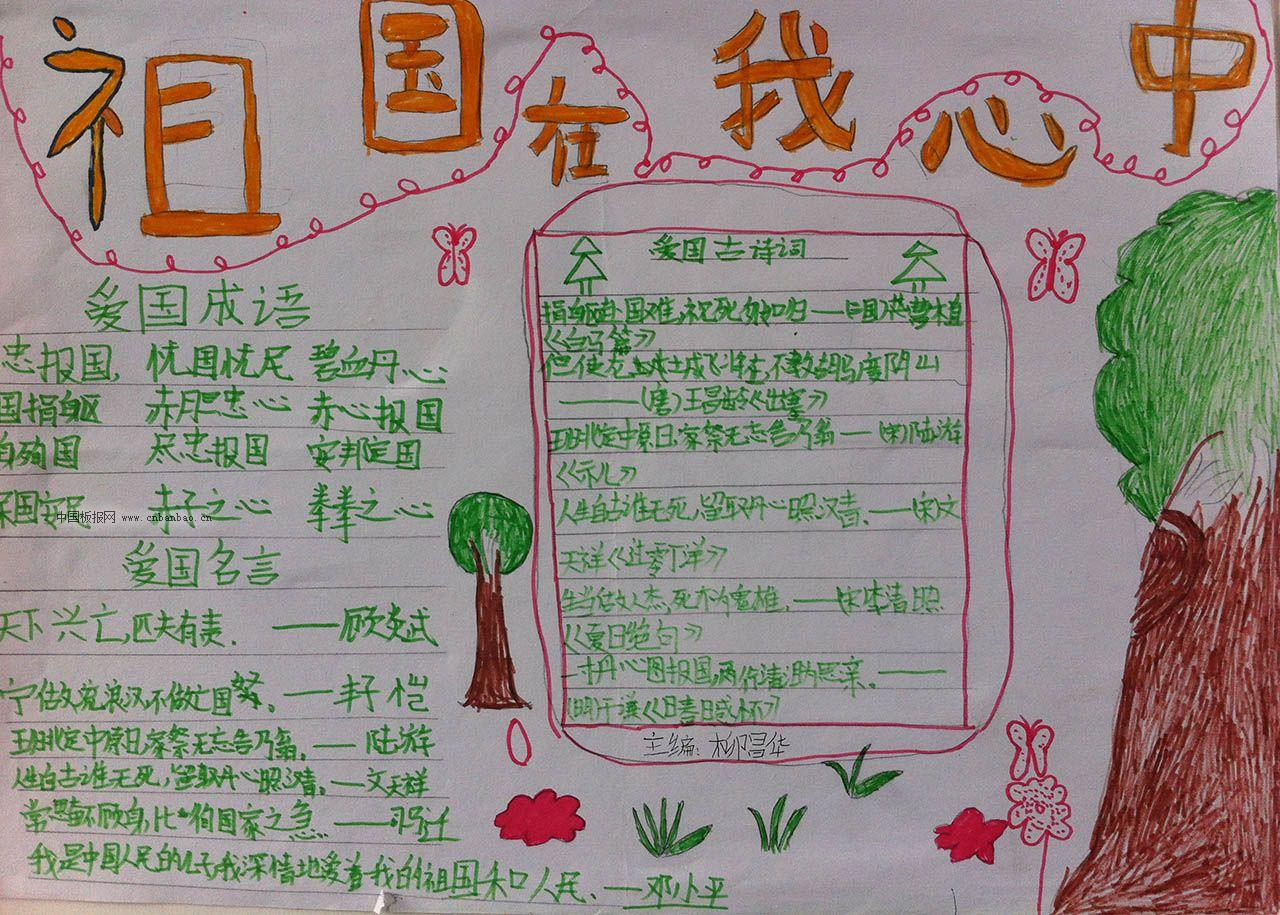 祖国在我心中
爱国成语
忠报国, 忧国忧民 碧血丹心
国捐躯 赤胆忠心 赤心报国
身殉国 尽忠报国 安邦定国
保国安民 赤子之心 拳拳之心
中国板报网 www.cnbanbao.cn
爱国名言
天下兴亡,匹夫有责. ——顾炎武
宁做流浪汉,不做亡国努。——丰子恺
王师北定中原日,家祭无忘告乃翁。——陆游
人生自古谁无死,留取丹心照汗青。——文天祥
常思奋不顾身,以徇国家之急 ——司马迁
我是中国人民的儿子,我深情地爱着我的祖国和人民、——邓小平
爱国古诗词
捐躯赴国难,视死忽如归——三国
《白马篇》
但使龙城飞将在,不教胡马度阴山
——(唐)王昌龄《出塞》
王师北定中原日,家祭无忘告乃翁——(宋)陆游
《示儿》
人生自古谁无死,留取丹心照汗青。——宋文
天祥《过零丁洋》
生当做人杰,死亦为雄.——宋李清照
《夏日绝句》
一寸丹心图报国,两行清泪为思亲。——
(明)于谦《 》
主编:柳昌华